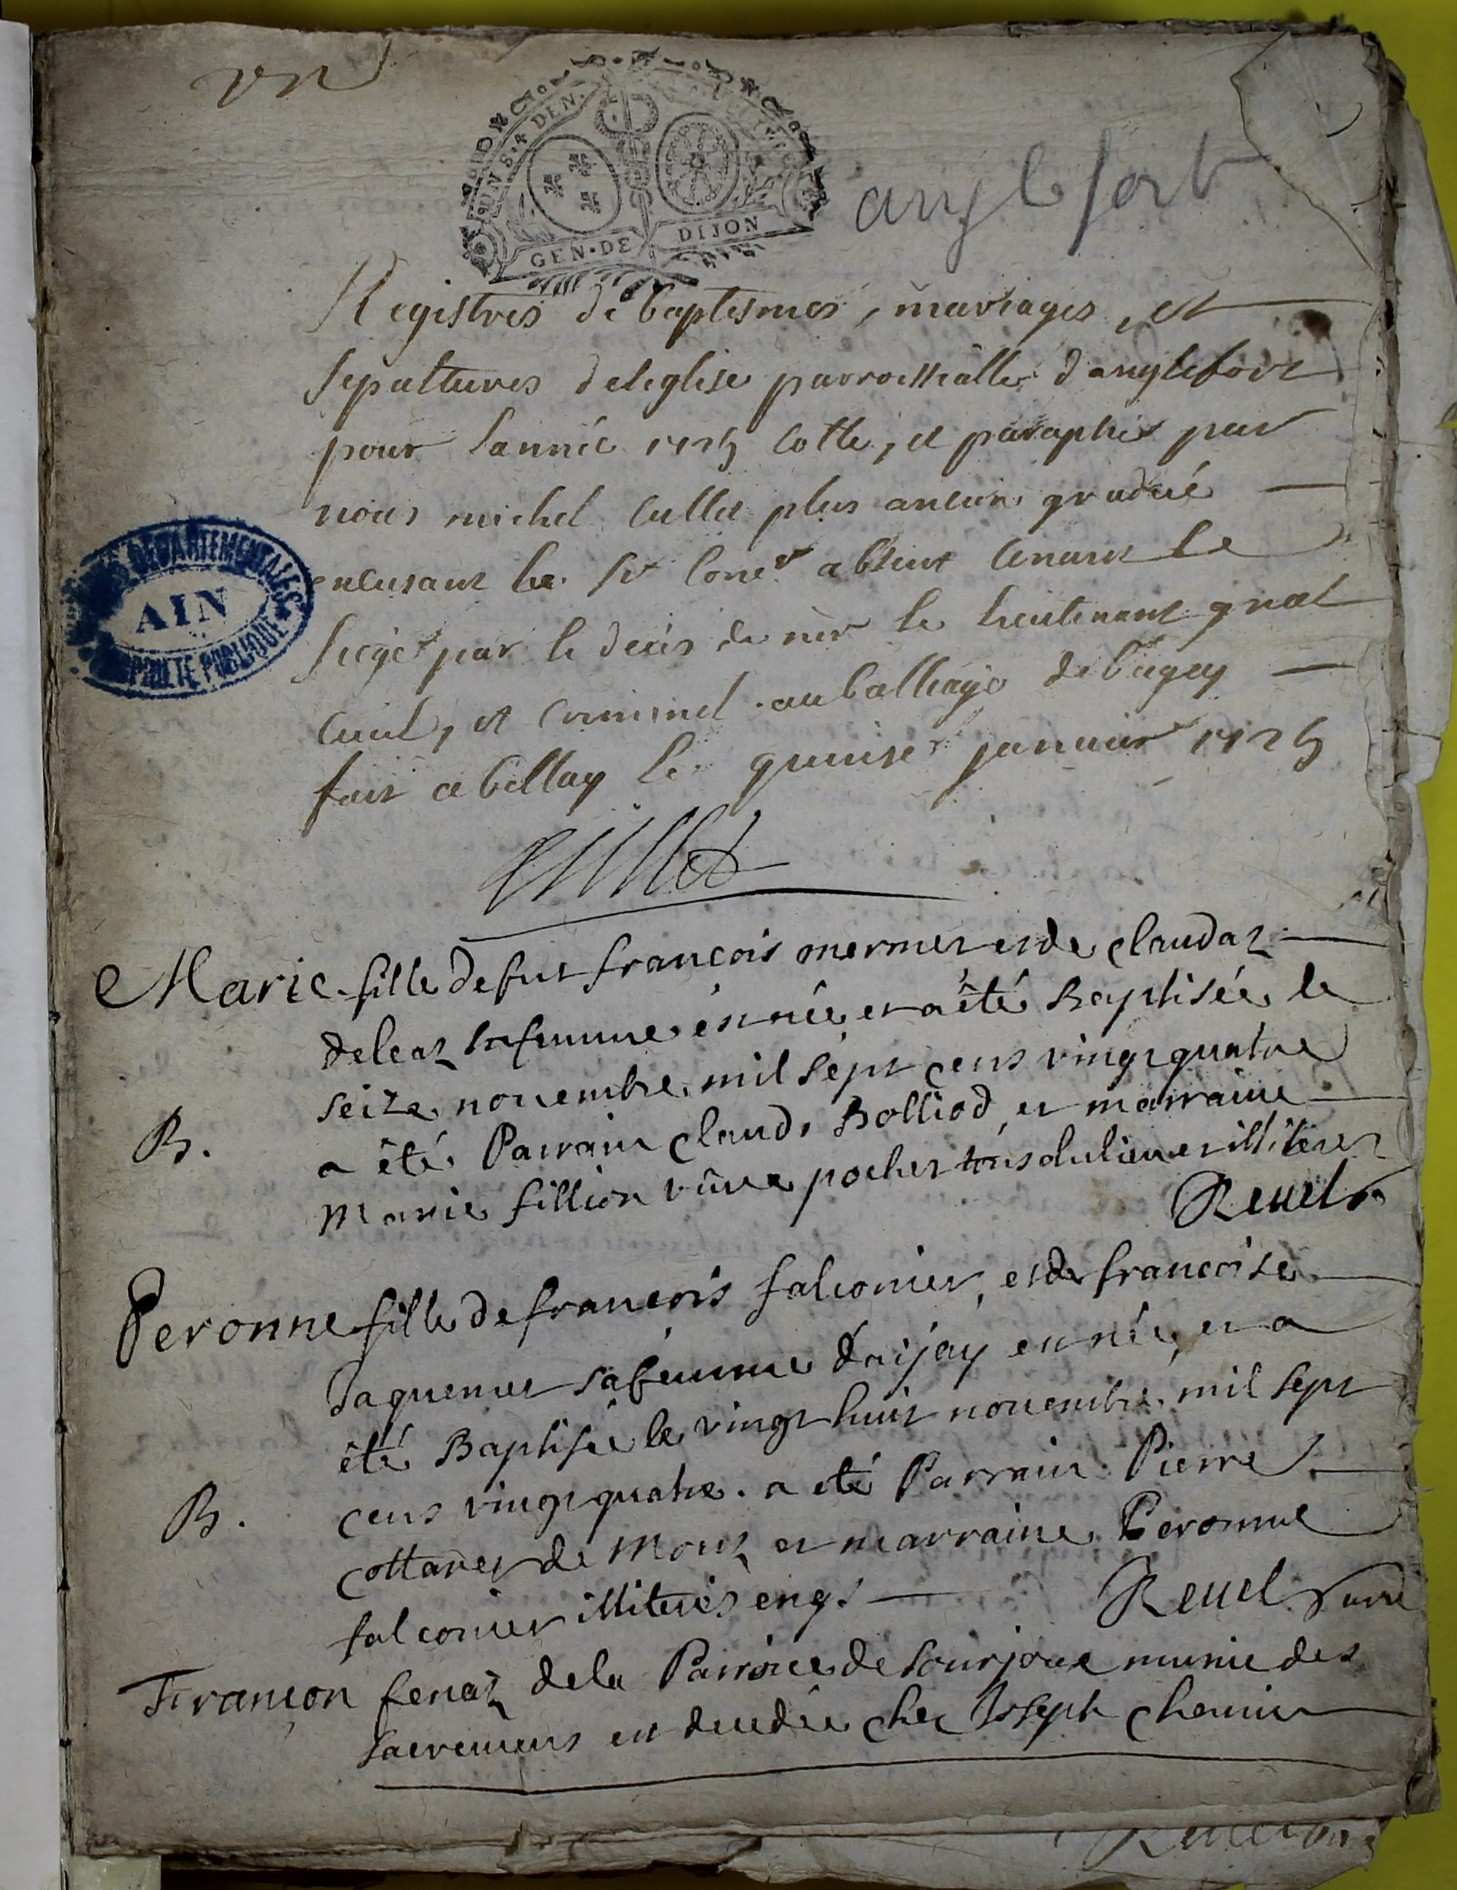 un
UN S. 4 DEN.
GEN. DE DIJON
anglefort
Registres de baptesmes, mariages, et
sepultures de leglise parroissialle d'anglefort
pour l'année 1725 cotté, et paraphé par
nous michel cullet plus ancien gradué
le Sr absent tenant le
siege par le deces de mr le lieutenant gnal
civil, et criminel au balliage de bugey
fait a bellay le quinse janvier 1725
cullet
ARCHIVES DEPARTEMENTALES
AIN
PROPRIETE PUBLIQUE
Marie fille de fut françois mermet et de claudaz
deleaz sa femme est née et a été Baptisée le
seize novembre mil sept cens vingt quatre
B.
a été Parrain claude Bolliod, et marraine
Marie fillion vûve pochet tous du lieu et illiteres
Revel
Peronne fille de françois falconier, et de francoise
Jaquemet sa femme d'aijay est née, et a
été Baptisée le vingt huit novembre mil sept
B.
cens vingt quatre. a été Parrain Pierre
cottarey de Mouz et marraine Peronne
falconier illiterés enqs Revel curé
Françon fenaz de la Parroice de sourjoux munie des
sacremens est decedée chez Joseph chemin
Revel